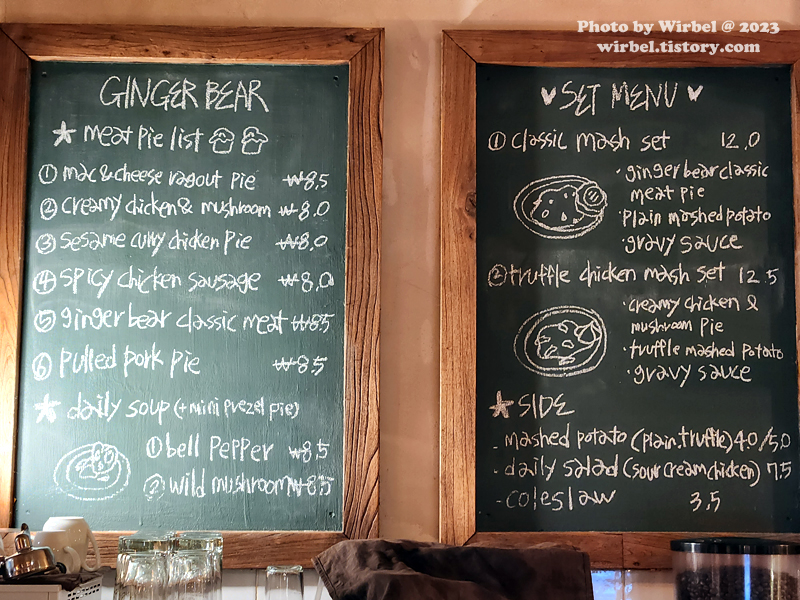 Photo by Wirbel @ 2023
wirbel.tistory.com
GINGER BEAR
meat pie list
① mac & cheese ragout pie ₩8.5
② creamy chicken & mushroom ₩8.0
③ sesame curry chicken pie ₩8.0
④ spicy chicken sausage ₩8.0
⑤ ginger bear classic meat ₩8.5
⑥ pulled pork pie ₩8.5
daily soup (+mini prezel pie)
① bell pepper ₩8.5
② wild mushroom ₩8.5
SET MENU
① classic mash set 12.0
· ginger bear classic
meat pie
· Plain mashed potato
· gravy sauce
② truffle chicken mash set 12.5
· creamy chicken &
mushroom pie
· truffle mashed potato
· gravy sauce
SIDE
- mashed potato (plain, truffle) 4.0/5.0
- daily salad (sour cream chicken) 7.5
- coleslaw 3.5